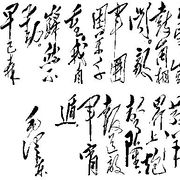 鼓角相
闻敌
军围
困万千
重我自
岿然不
动
早已森
界上炮
声隆
报道敌
军宵
遁
毛泽东